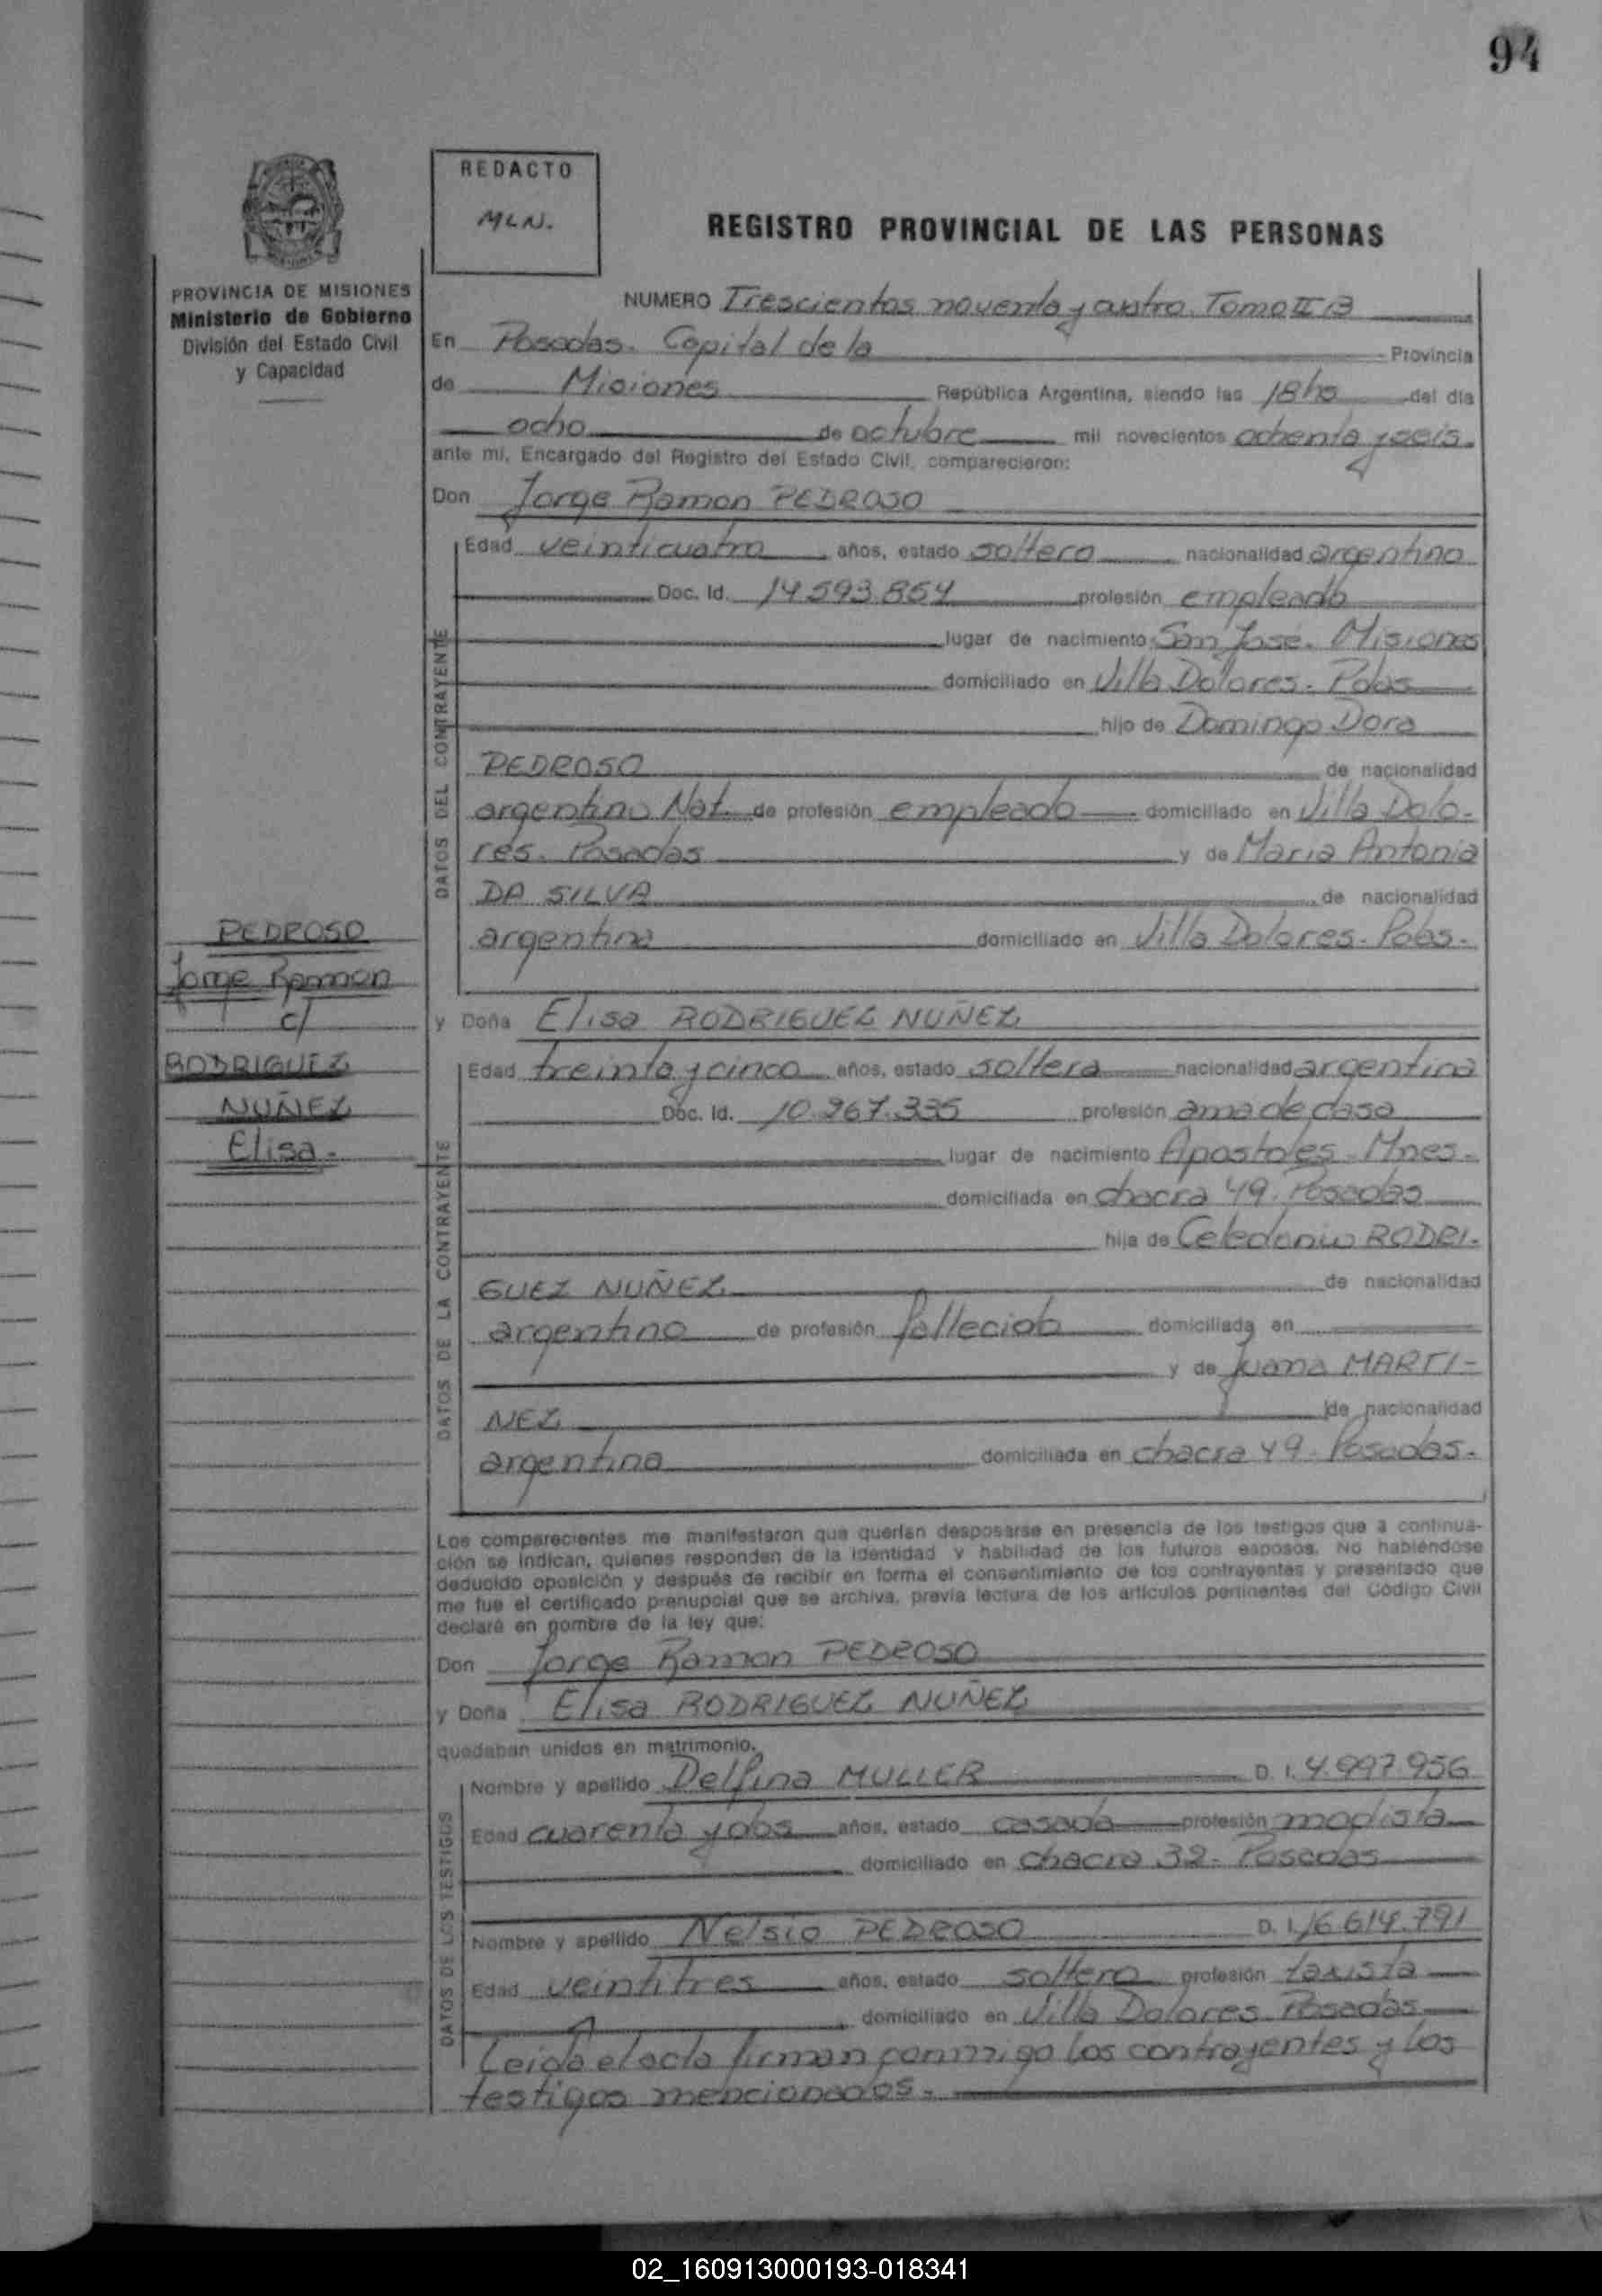 94
REDACTO
MLN.
REGISTRO PROVINCIAL DE LAS PERSONAS
PROVINCIA DE MISIONES
Ministerio de Gobierno
División del Estado Civil
y Capacidad
NUMERO Trescientos noventa y cuatro. Tomo II B
En Posadas. Capital de la Provincia
de Misiones República Argentina, siendo las 18hs del día
ocho de octubre mil novecientos ochenta y seis.
ante mí, Encargado del Registro del Estado Civil, comparecieron:
Don Jorge Ramon PEDROSO
DATOS DEL CONTRAYENTE
Edad veinticuatro años, estado soltero nacionalidad argentino
Doc. Id. 14.593.854 profesión empleado
lugar de nacimiento San Jose. Misiones
domiciliado en Villa Dolores. Pdas
hijo de Domingo Doro
PEDROSO de nacionalidad
argentino Nat. de profesión empleado domiciliado en Villa Dolo-
res. Posadas y de Maria Antonia
DA SILVA de nacionalidad
argentina domiciliado en Villa Dolores. Pdas.
PEDROSO
Jorge Ramon
c/
RODRIGUEZ
NUÑEZ
Elisa.
y Doña Elisa RODRIGUEZ NUÑEZ
DATOS DE LA CONTRAYENTE
Edad treinta y cinco años, estado soltera nacionalidad argentina
Doc. Id. 10.267.335 profesión ama de casa
lugar de nacimiento Apostoles. Mnes.
domiciliada en chacra 49. Posadas
hija de Celedonio RODRI-
GUEZ NUÑEZ de nacionalidad
argentino de profesión fallecido domiciliada en
y de Juana MARTI-
NEZ de nacionalidad
argentina domiciliada en chacra 49. Posadas.
Los comparecientes me manifestaron que querían desposarse en presencia de los testigos que a continua-
ción se indican, quienes responden de la identidad y habilidad de los futuros esposos. No habiéndose
deducido oposición y después de recibir en forma el consentimiento de los contrayentes y presentado que
me fue el certificado prenupcial que se archiva, previa lectura de los artículos pertinentes del Código Civil
declaré en nombre de la ley que:
Don Jorge Ramon PEDROSO
y Doña Elisa RODRIGUEZ NUÑEZ
quedaban unidos en matrimonio.
DATOS DE LOS TESTIGOS
Nombre y apellido Delfina MULLER D. I. 4.997.956
Edad cuarenta y dos años, estado casada profesión modista
domiciliado en chacra 32. Posadas
Nombre y apellido Nelsio PEDROSO D. I. 16.614.791
Edad veintitres años, estado soltero profesión taxista
domiciliado en Villa Dolores Posadas
Leida el acta firman conmigo los contrayentes y los
testigos mencionados.
02_160913000193-018341